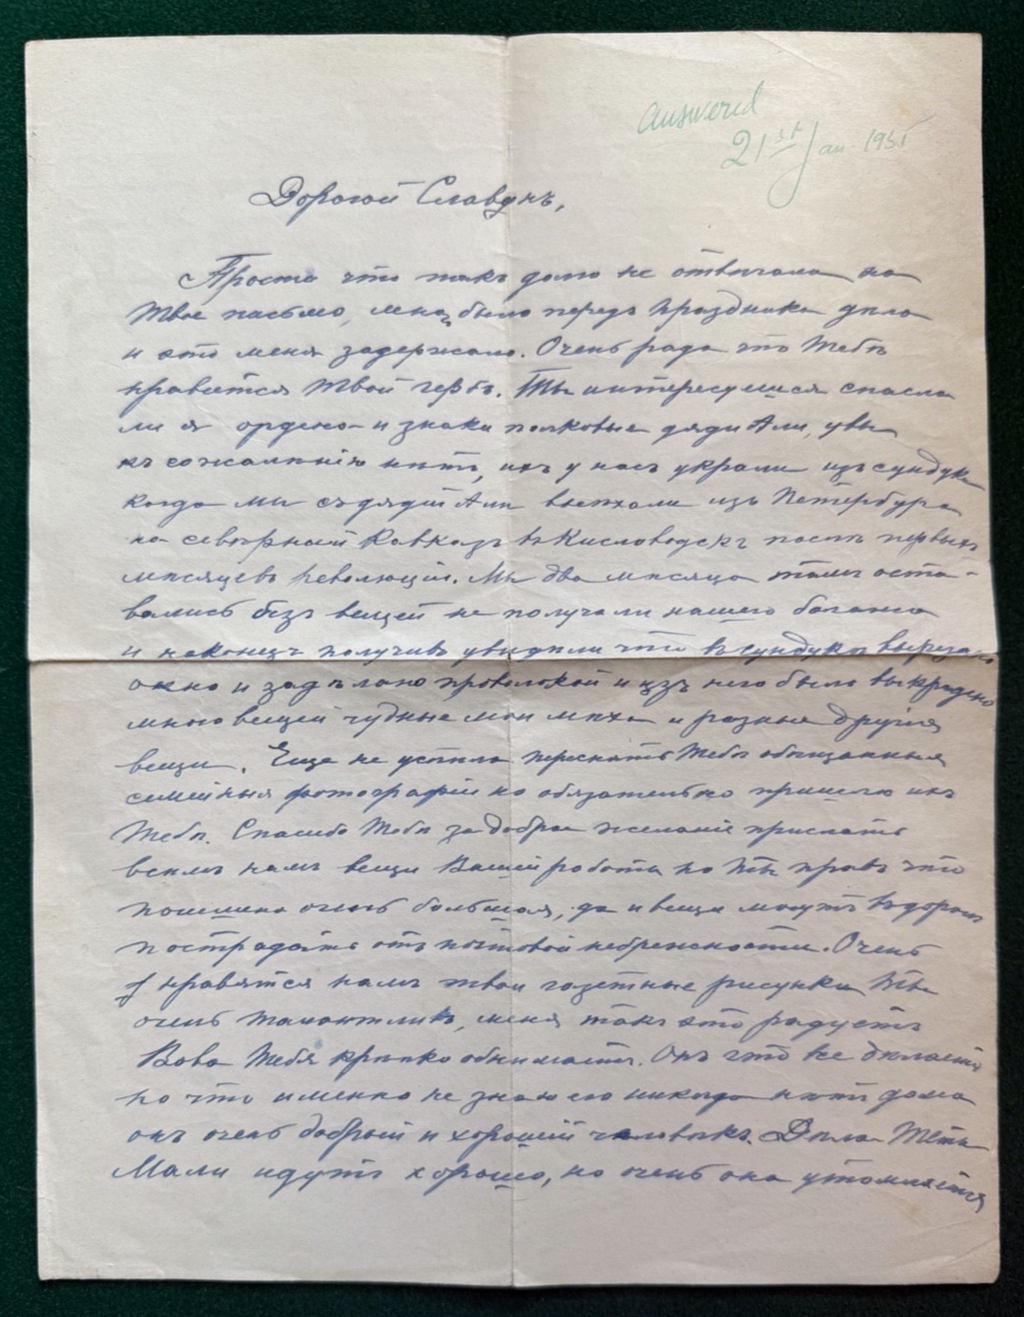 answered
21st Jan 1935
Дорогой Славунъ,
Прости что такъ долго не отвѣчала на
Твое письмо, много было передъ праздниками дѣла
и это меня задержало. Очень рада что Тебѣ
нравится Твой гербъ. Ты интересуешся спасла
ли я ордена и знаки полковые дяди Али, увы
къ сожалѣнію нѣтъ, ихъ у насъ украли изъ сундука
когда мы съ дядей Али выехали изъ Петербурга
на северный Кавказъ въ Кисловодскъ послѣ первыхъ
мѣсяцевъ революціи. Мы два мѣсяца тамъ оста-
вались безъ вещей не получали нашего багажа
и наконецъ получивъ увидѣли что въ сундукѣ вырезано
окно и задѣлано проволокой и изъ него было выкрадено
много вещей чудные мои мѣха и разныя другія
вещи. Еще не успѣла переснять Тебѣ обѣщанныя
семейныя фотографіи но обязательно пришлю ихъ
Тебѣ. Спасибо Тебѣ за доброе желаніе прислать
всѣмъ намъ вещи Вашей работы но Ты правъ что
пошлина очень большая, да и вещи могутъ въ дороге
пострадать отъ почтовой небрежности. Очень
нравятся намъ твои газетные рисунки Ты
очень талантливъ, меня такъ это радуетъ
Вова Тебя крѣпко обнимаетъ. Онъ что то делаетъ
но что именно не знаю его никогда нѣтъ дома
онъ очень добрый и хорошій человѣкъ. Дѣла Тети
Мали идутъ хорошо, но очень она утомляется